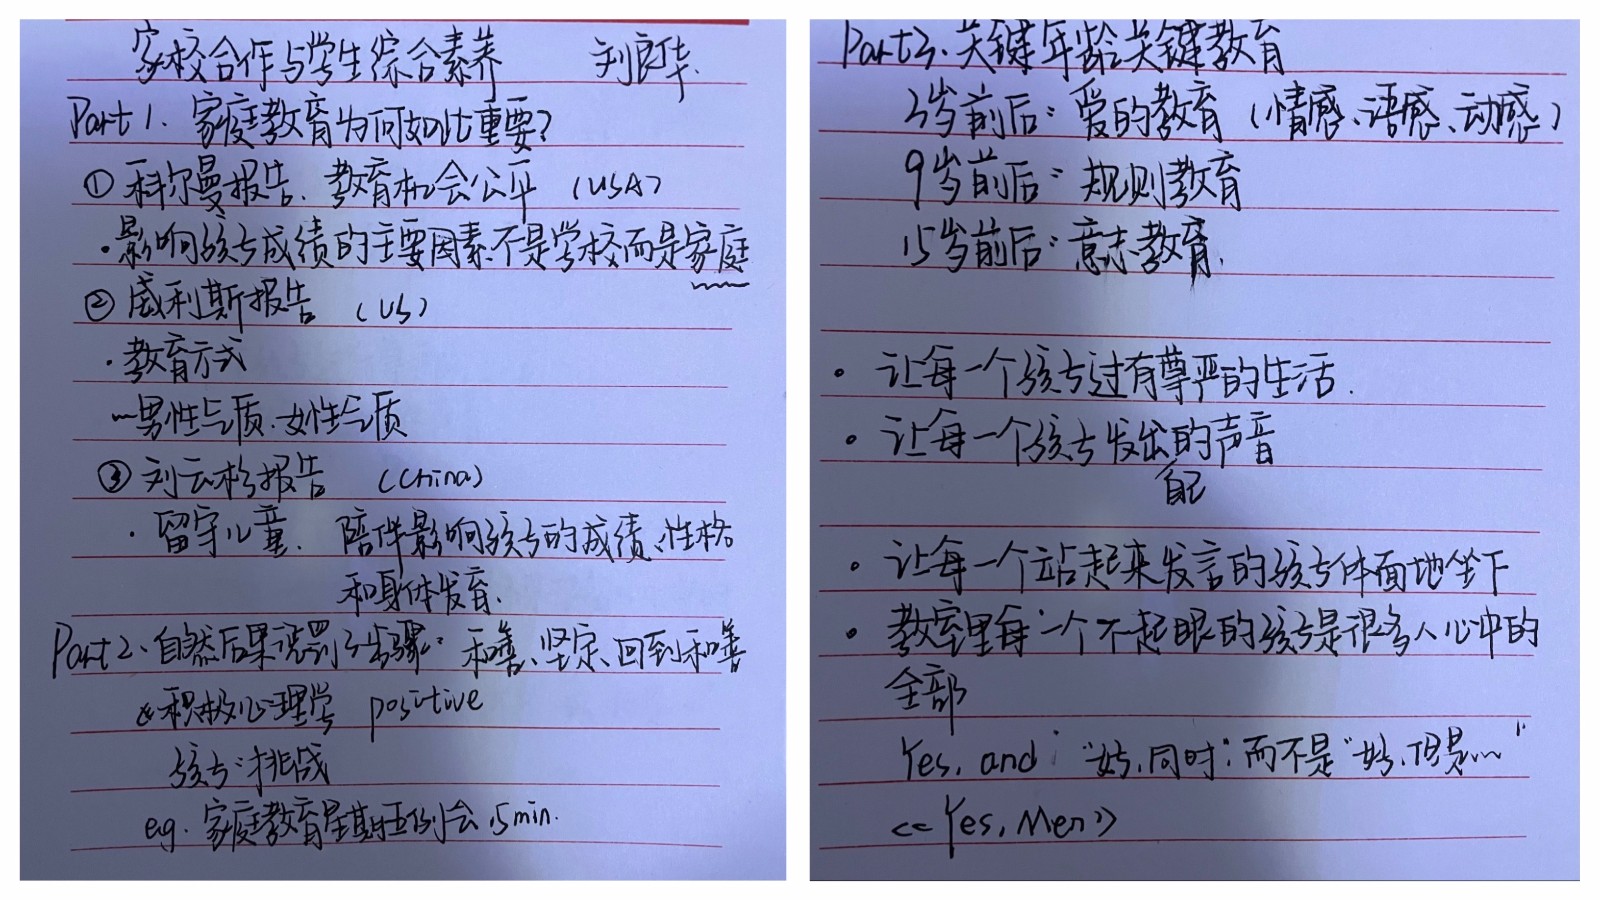 家校合作与学生综合素养 刘良华.
Part 1. 家庭教育为何如此重要?
① 科尔曼报告. 教育机会公平 (USA)
·影响孩子成绩的主要因素不是学校而是家庭
② 威利斯报告 (US)
·教育方式
男性气质.女性气质
③ 刘云杉报告 (China)
·留守儿童. 陪伴影响孩子的成绩、性格
和身体发育.
Part 2、自然后果惩罚 3步骤: 和善、坚定、回到和善
积极心理学 positive
孩子"挑战
eg. 家庭教育星期五例会 15min.
Part 3. 关键年龄关键教育
3岁前后: 爱的教育 (情感、语感、动感)
9岁前后: 规则教育
15岁前后: 意志教育.
· 让每一个孩子过有尊严的生活.
· 让每一个孩子发出的声音
自己
· 让每一个站起来发言的孩子体面地坐下
· 教室里每一个不起眼的孩子是很多人心中的
全部
Yes, and: "好,同时; 而不是"好,但是…"
<<Yes, Men>>